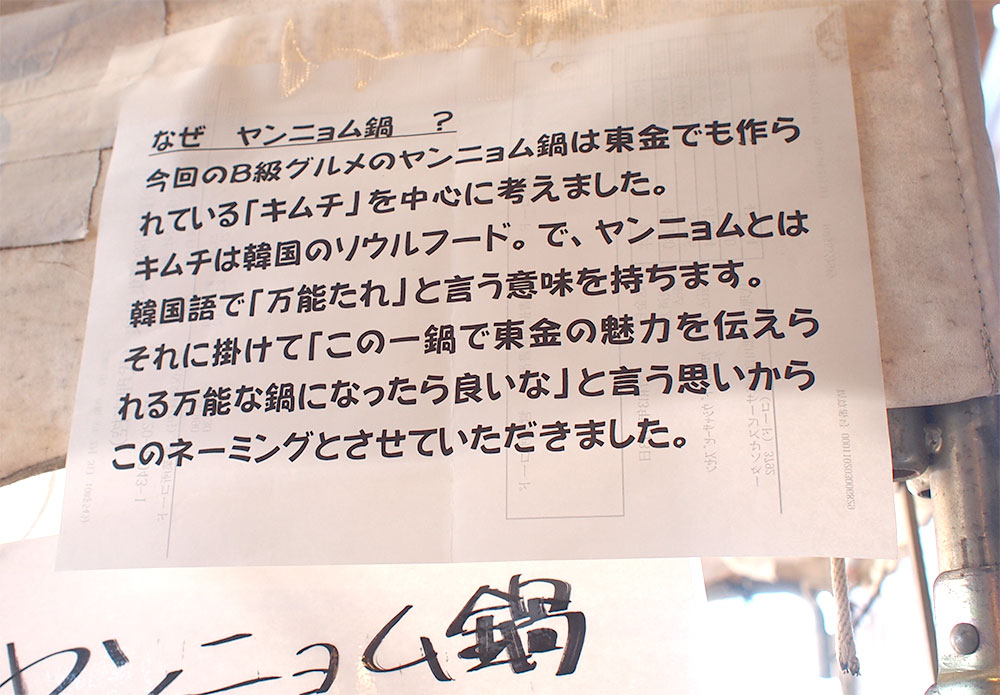 なぜ　ヤンニョム鍋　？
今回のB級グルメのヤンニョム鍋は東金でも作ら
れている「キムチ」を中心に考えました。
キムチは韓国のソウルフード。で、ヤンニョムとは
韓国語で「万能たれ」と言う意味を持ちます。
それに掛けて「この一鍋で東金の魅力を伝えら
れる万能な鍋になったら良いな」と言う思いから
このネーミングとさせていただきました。
ヤンニョム鍋